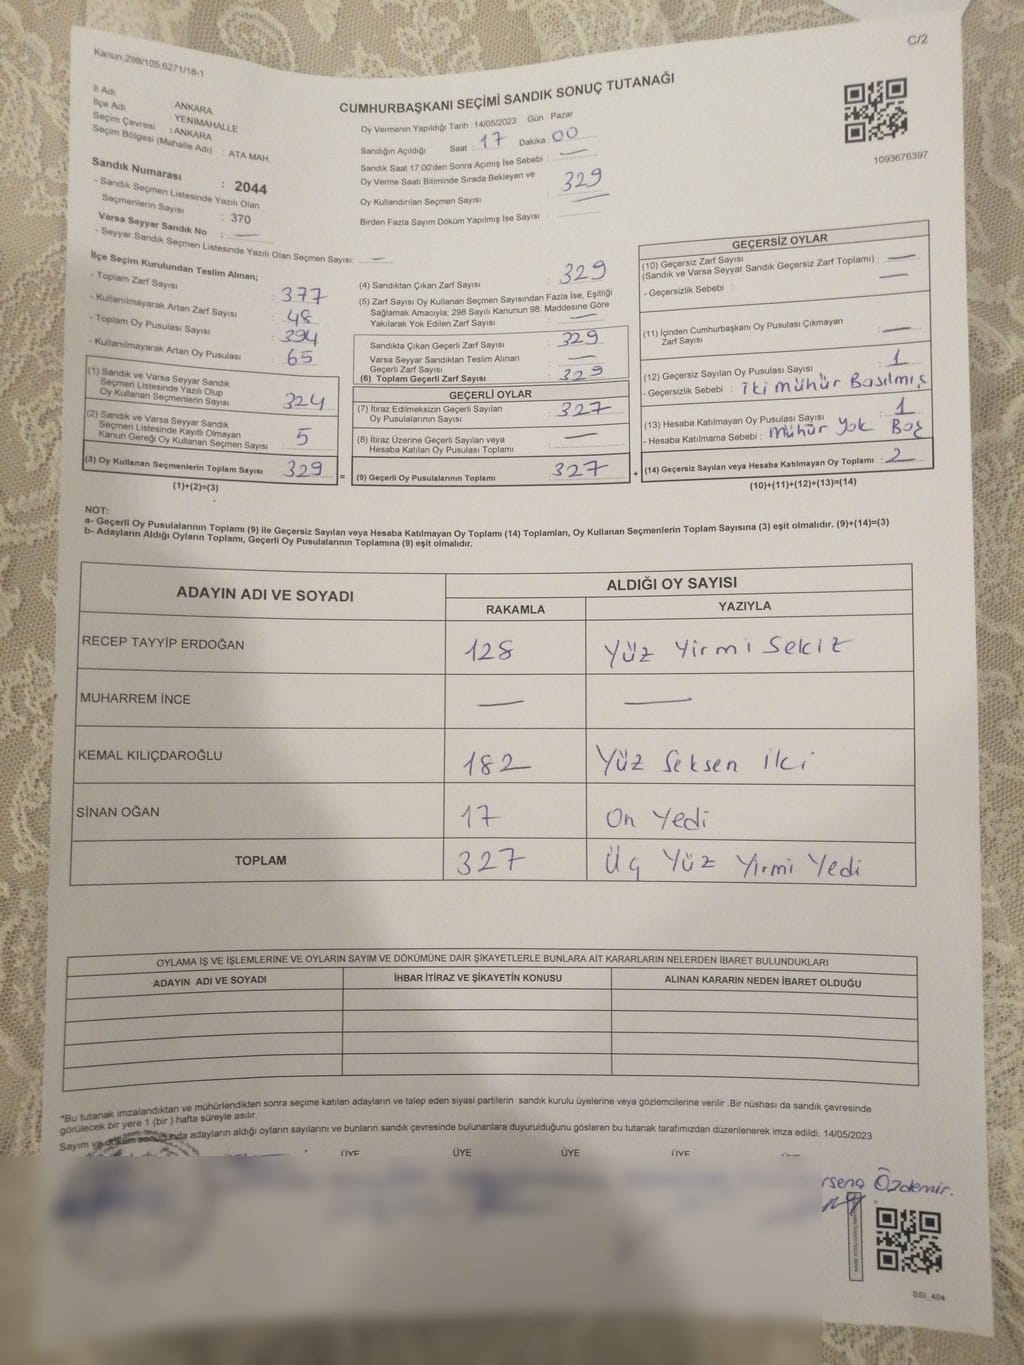 C/2
Kanun,298/105,6271/18-1
İl Adı : ANKARA
İlçe Adı : YENİMAHALLE
Seçim Çevresi : ANKARA
Seçim Bölgesi (Mahalle Adı) : ATA MAH
Sandık Numarası : 2044
- Sandık Seçmen Listesinde Yazılı Olan
Seçmenlerin Sayısı : 370
Varsa Seyyar Sandık No : —
- Seyyar Sandık Seçmen Listesinde Yazılı Olan Seçmen Sayısı: —
CUMHURBAŞKANI SEÇİMİ SANDIK SONUÇ TUTANAĞI
Oy Vermenin Yapıldığı Tarih : 14/05/2023 Gün : Pazar
Sandığın Açıldığı Saat : 17 Dakika 00
Sandık Saat 17.00'den Sonra Açımış İse Sebebi : —
Oy Verme Saati Bitiminde Sırada Bekleyen ve
Oy Kullandırılan Seçmen Sayısı : 329
Birden Fazla Sayım Döküm Yapılmış İse Sayısı :
1093676397
İlçe Seçim Kurulundan Teslim Alınan;
- Toplam Zarf Sayısı : 377
- Kullanılmayarak Artan Zarf Sayısı : 48
- Toplam Oy Pusulası Sayısı : 394
- Kullanılmayarak Artan Oy Pusulası : 65
(1) Sandık ve Varsa Seyyar Sandık
Seçmen Listesinde Yazılı Olup
Oy Kullanan Seçmenlerin Sayısı : 324
(2) Sandık ve Varsa Seyyar Sandık
Seçmen Listesinde Kayıtlı Olmayan
Kanun Gereği Oy Kullanan Seçmen Sayısı : 5
(3) Oy Kullanan Seçmenlerin Toplam Sayısı : 329
(1)+(2)=(3)
(4) Sandıktan Çıkan Zarf Sayısı : 329
(5) Zarf Sayısı Oy Kullanan Seçmen Sayısından Fazla İse, Eşitliği
Sağlamak Amacıyla; 298 Sayılı Kanunun 98. Maddesine Göre
Yakılarak Yok Edilen Zarf Sayısı : —
Sandıkta Çıkan Geçerli Zarf Sayısı : 329
Varsa Seyyar Sandıktan Teslim Alınan
Geçerli Zarf Sayısı : —
(6) Toplam Geçerli Zarf Sayısı : 329
GEÇERLİ OYLAR
(7) İtiraz Edilmeksizin Geçerli Sayılan
Oy Pusulalarının Sayısı : 327
(8) İtiraz Üzerine Geçerli Sayılan veya
Hesaba Katılan Oy Pusulası Toplamı : —
= (9) Geçerli Oy Pusulalarının Toplamı : 327 +
GEÇERSİZ OYLAR
(10) Geçersiz Zarf Sayısı
(Sandık ve Varsa Seyyar Sandık Geçersiz Zarf Toplamı) : —
- Geçersizlik Sebebi : —
(11) İçinden Cumhurbaşkanı Oy Pusulası Çıkmayan
Zarf Sayısı : —
(12) Geçersiz Sayılan Oy Pusulası Sayısı : 1
- Geçersizlik Sebebi : iki mühür Basılmış
(13) Hesaba Katılmayan Oy Pusulası Sayısı : 1
- Hesaba Katılmama Sebebi : mühür yok Boş
(14) Geçersiz Sayılan veya Hesaba Katılmayan Oy Toplamı : 2
(10)+(11)+(12)+(13)=(14)
NOT:
a- Geçerli Oy Pusulalarının Toplamı (9) ile Geçersiz Sayılan veya Hesaba Katılmayan Oy Toplamı (14) Toplamları, Oy Kullanan Seçmenlerin Toplam Sayısına (3) eşit olmalıdır. (9)+(14)=(3)
b- Adayların Aldığı Oyların Toplamı, Geçerli Oy Pusulalarının Toplamına (9) eşit olmalıdır.
ADAYIN ADI VE SOYADI ALDIĞI OY SAYISI
RAKAMLA YAZIYLA
RECEP TAYYİP ERDOĞAN 128 Yüz Yirmi Sekiz
MUHARREM İNCE — —
KEMAL KILIÇDAROĞLU 182 Yüz Seksen iki
SİNAN OĞAN 17 On Yedi
TOPLAM 327 Üç Yüz Yirmi Yedi
OYLAMA İŞ VE İŞLEMLERİNE VE OYLARIN SAYIM VE DÖKÜMÜNE DAİR ŞİKAYETLERLE BUNLARA AİT KARARLARIN NELERDEN İBARET BULUNDUKLARI
ADAYIN ADI VE SOYADI İHBAR İTİRAZ VE ŞİKAYETİN KONUSU ALINAN KARARIN NEDEN İBARET OLDUĞU
*Bu tutanak imzalandıktan ve mühürlendikten sonra seçime katılan adayların ve talep eden siyasi partilerin sandık kurulu üyelerine veya gözlemcilerine verilir .Bir nüshası da sandık çevresinde
görülecek bir yere 1 (bir ) hafta süreyle asılır.
Sayım ve döküm sonucunda adayların aldığı oyların sayılarını ve bunların sandık çevresinde bulunanlara duyurulduğunu gösteren bu tutanak tarafımızdan düzenlenerek imza edildi. 14/05/2023
ÜYE ÜYE ÜYE ÜYE
Özdemir.